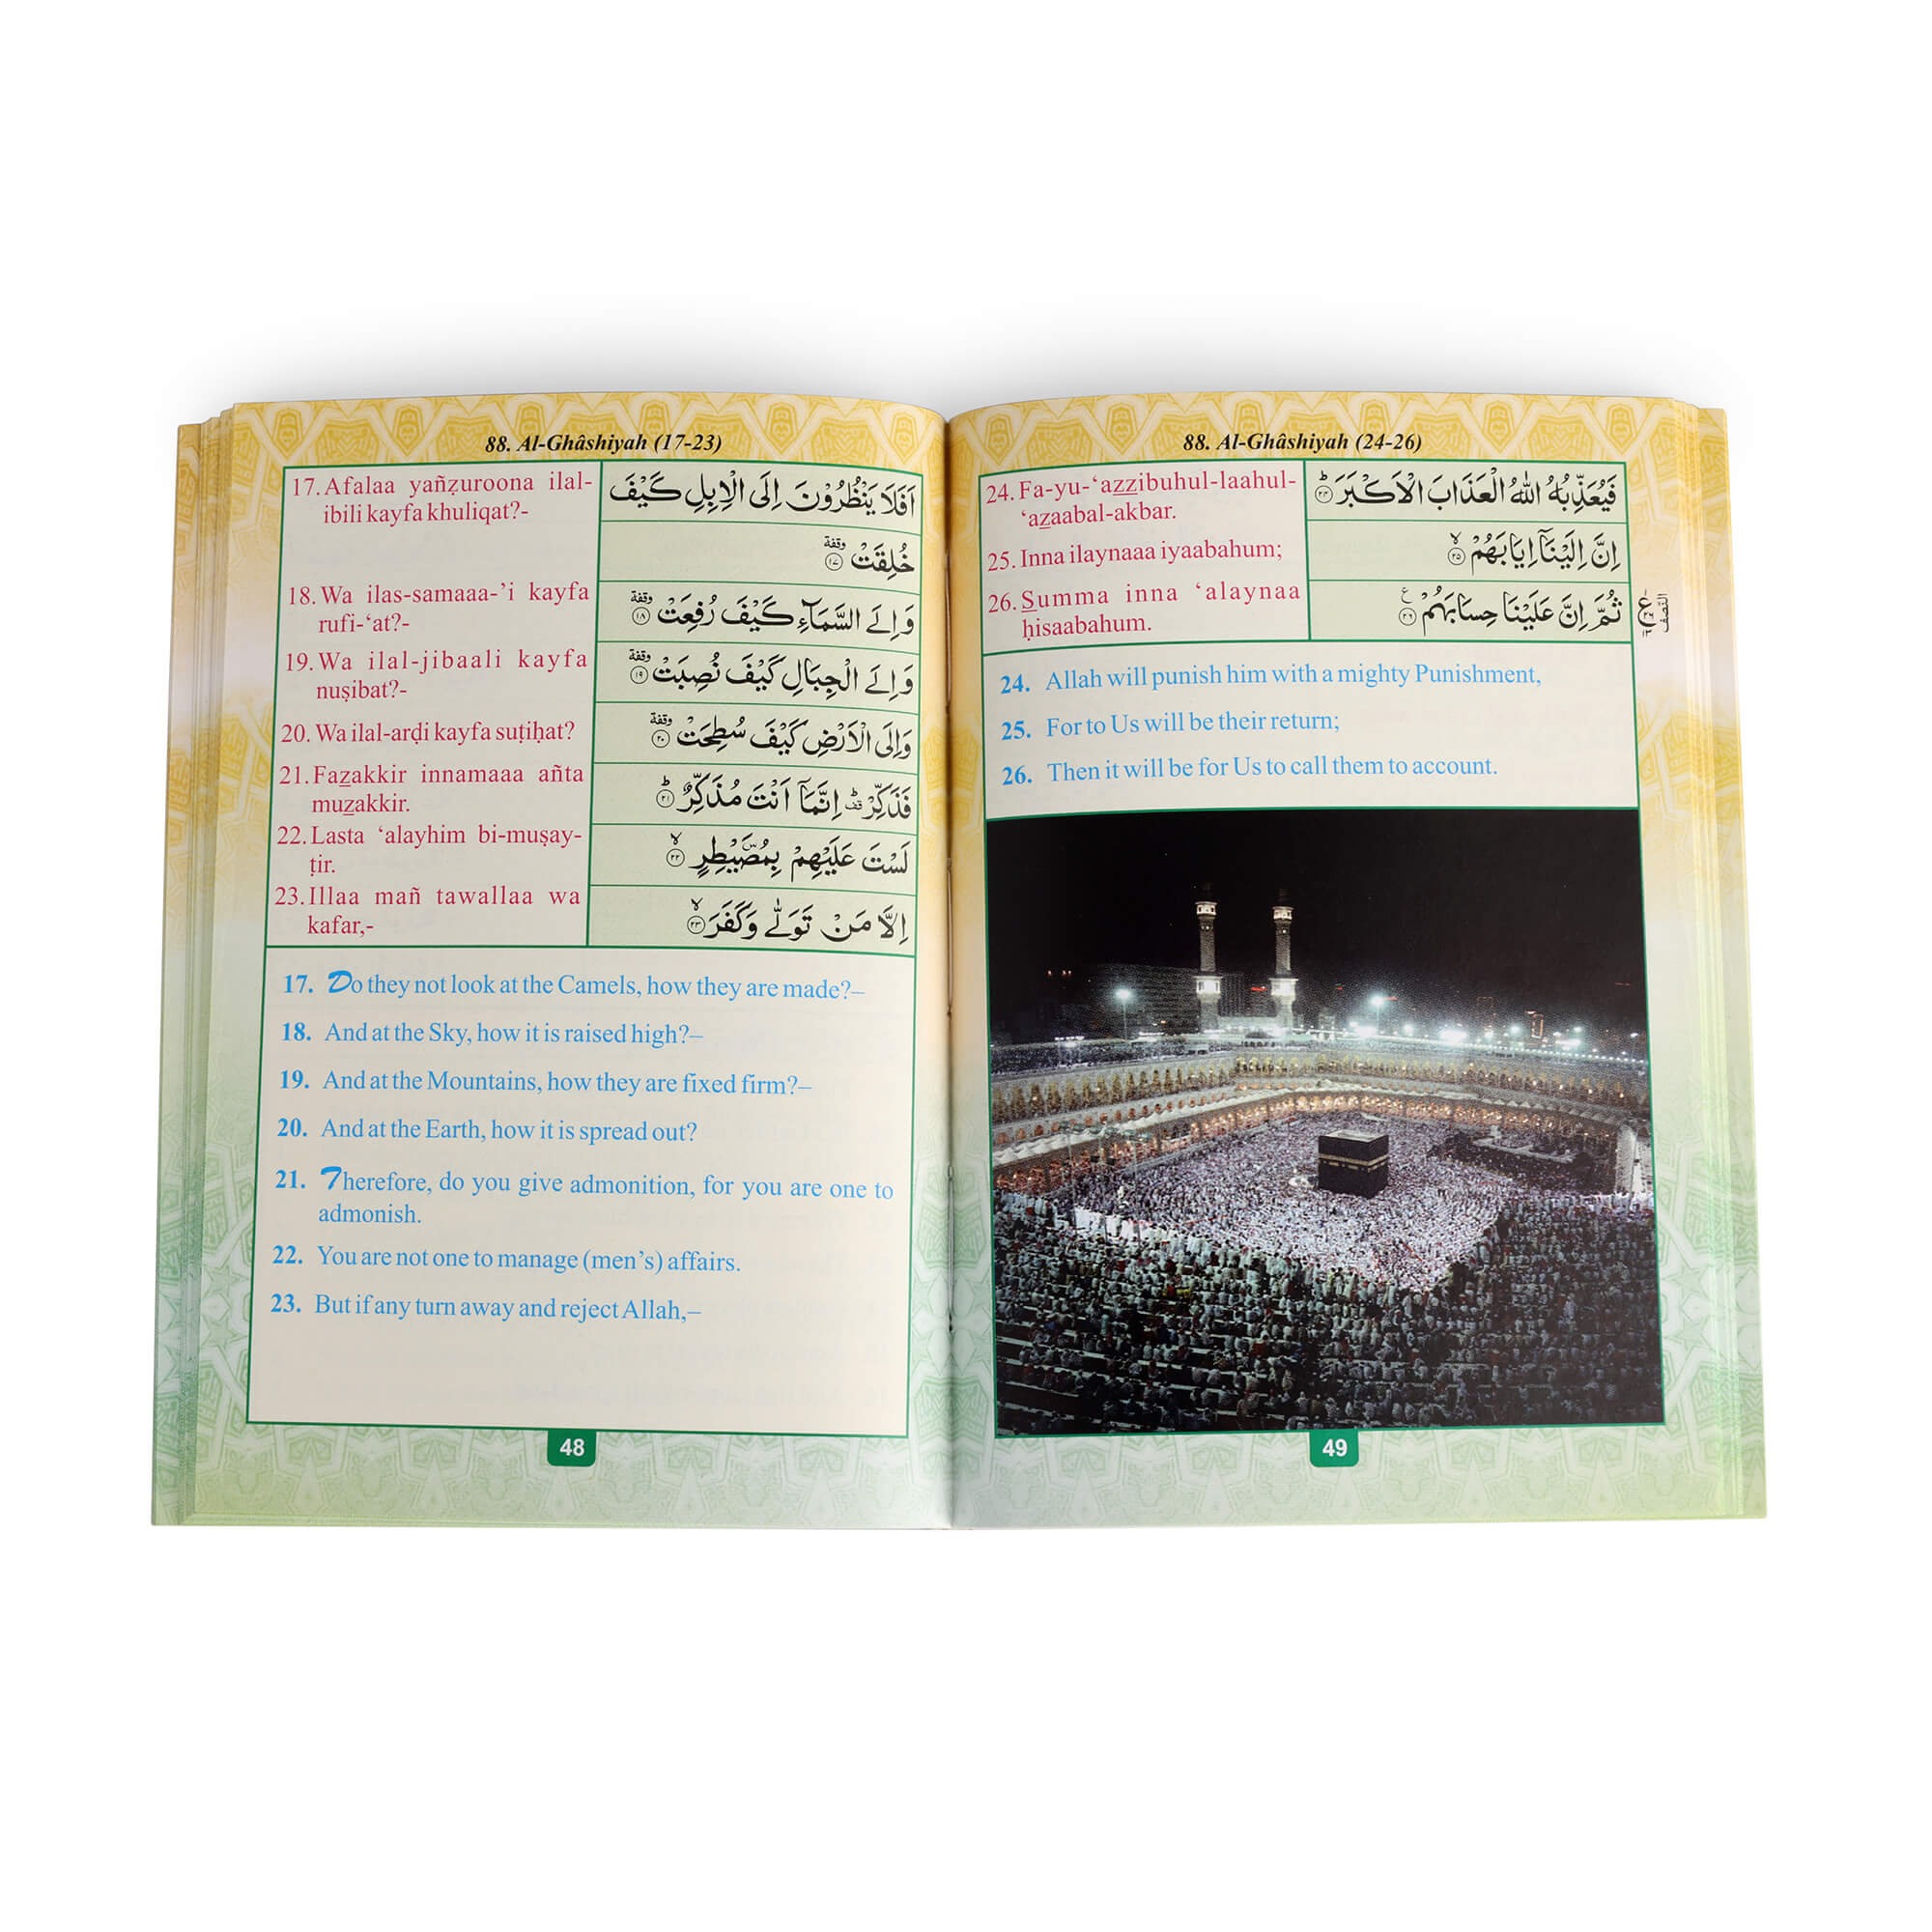 88. Al-Ghâshiyah (17-23)
17. Afalaa yañẓuroona ilal-
ibili kayfa khuliqat?-
18. Wa ilas-samaaa-’i kayfa
rufi-‘at?-
19. Wa ilal-jibaali kayfa
nuṣibat?-
20. Wa ilal-arḍi kayfa suṭiḥat?
21. Fazakkir innamaaa añta
muzakkir.
22. Lasta ‘alayhim bi-muṣay-
ṭir.
23. Illaa mañ tawallaa wa
kafar,-
اَفَلَا يَنْظُرُوْنَ اِلَى الْاِبِلِ كَيْفَ
خُلِقَتْ ۝١٧ وقفة
وَاِلَى السَّمَآءِ كَيْفَ رُفِعَتْ ۝١٨ وقفة
وَاِلَى الْجِبَالِ كَيْفَ نُصِبَتْ ۝١٩ وقفة
وَاِلَى الْاَرْضِ كَيْفَ سُطِحَتْ ۝٢٠ وقفة
فَذَكِّرْ قف ط اِنَّمَآ اَنْتَ مُذَكِّرٌ ۝٢١ ط
لَسْتَ عَلَيْهِمْ بِمُصَۜيْطِرٍ ۝٢٢ لا
اِلَّا مَنْ تَوَلّٰى وَكَفَرَ ۝٢٣ لا
17. Do they not look at the Camels, how they are made?–
18. And at the Sky, how it is raised high?–
19. And at the Mountains, how they are fixed firm?–
20. And at the Earth, how it is spread out?
21. Therefore, do you give admonition, for you are one to
admonish.
22. You are not one to manage (men’s) affairs.
23. But if any turn away and reject Allah,–
48
88. Al-Ghâshiyah (24-26)
24. Fa-yu-‘azzibuhul-laahul-
‘azaabal-akbar.
25. Inna ilaynaaa iyaabahum;
26. Summa inna ‘alaynaa
ḥisaabahum.
فَيُعَذِّبُهُ اللّٰهُ الْعَذَابَ الْاَكْبَرَ ۝٢٤ ط
اِنَّ اِلَيْنَآ اِيَابَهُمْ ۝٢٥ لا
ثُمَّ اِنَّ عَلَيْنَا حِسَابَهُمْ ۝٢٦ ع
النصف
24. Allah will punish him with a mighty Punishment,
25. For to Us will be their return;
26. Then it will be for Us to call them to account.
49